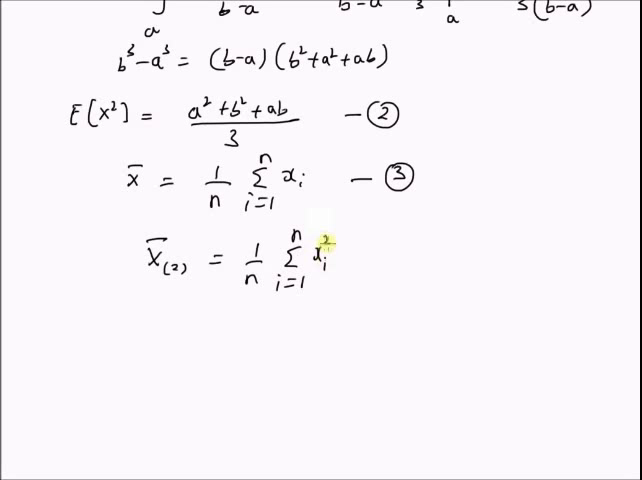 a b-a b-a 3 a 3(b-a)
b³-a³ = (b-a)(b²+a²+ab)
E[X²] = a²+b²+ab / 3 — ②
x̄ = 1/n Σ i=1 n xi — ③
X̄(2) = 1/n Σ i=1 n xi²